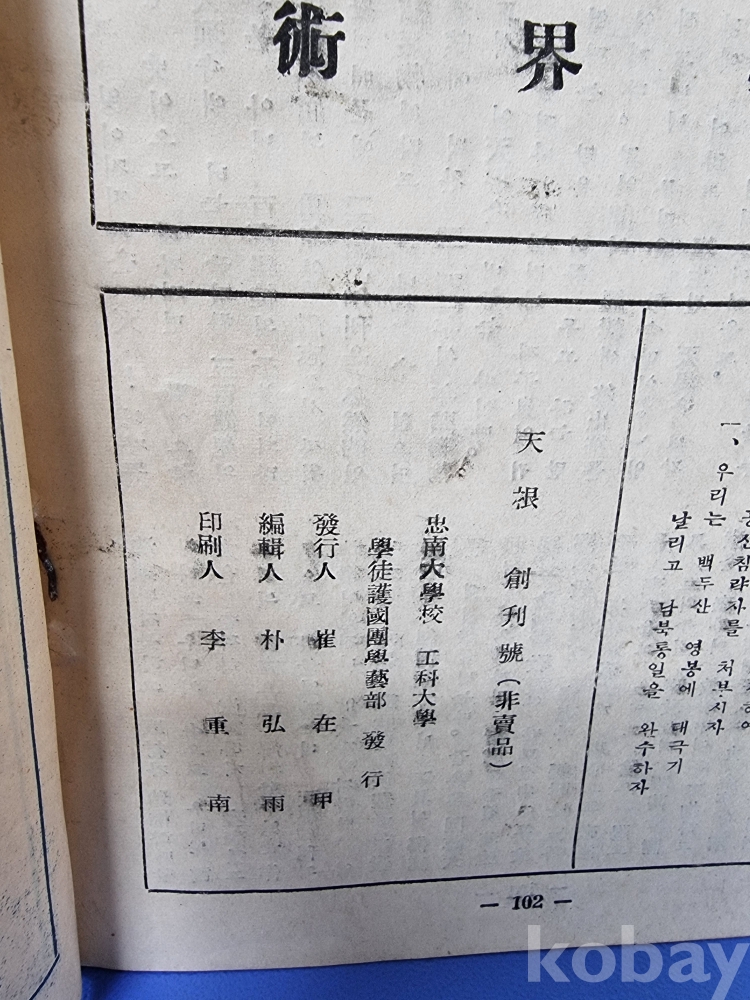 界
術
산침략자를 처부시자
一、우리는 백두산 영봉에 태극기
날리고 남북통일을 완수하자
天根 創刊號(非賣品)
忠南大學校 工科大學
學徒護國團學藝部 發行
發行人 崔在甲
編輯人 朴弘雨
印刷人 李重南
— 102 —
kobay